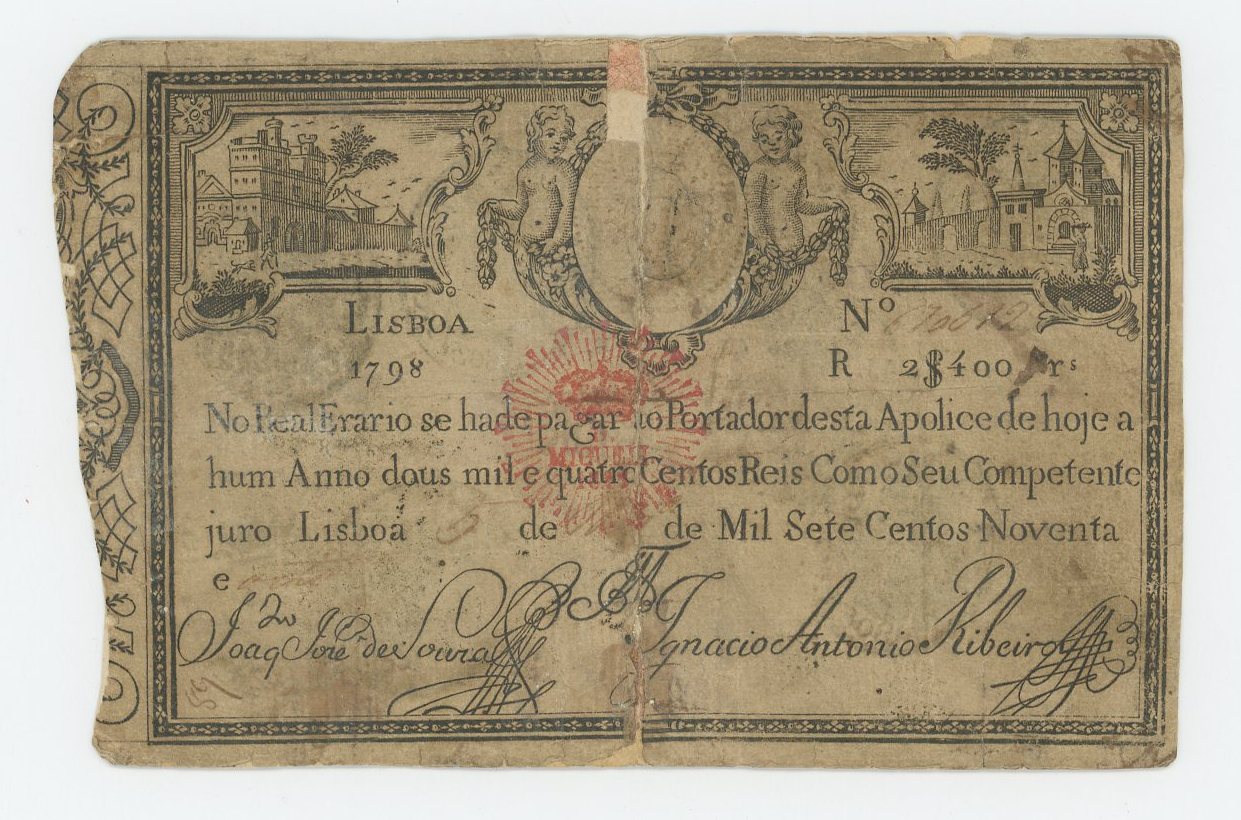 LISBOA
Nº
1798
R 2$400 rs
No Real Erario se hade pagar ao Portador desta Apolice de hoje a
MIGUEL
hum Anno dous mil e quatro Centos Reis Como Seu Competente
juro Lisboa 5 de de Mil Sete Centos Noventa
e
Joaqm José de Souza
Ignacio Antonio Ribeiro
59